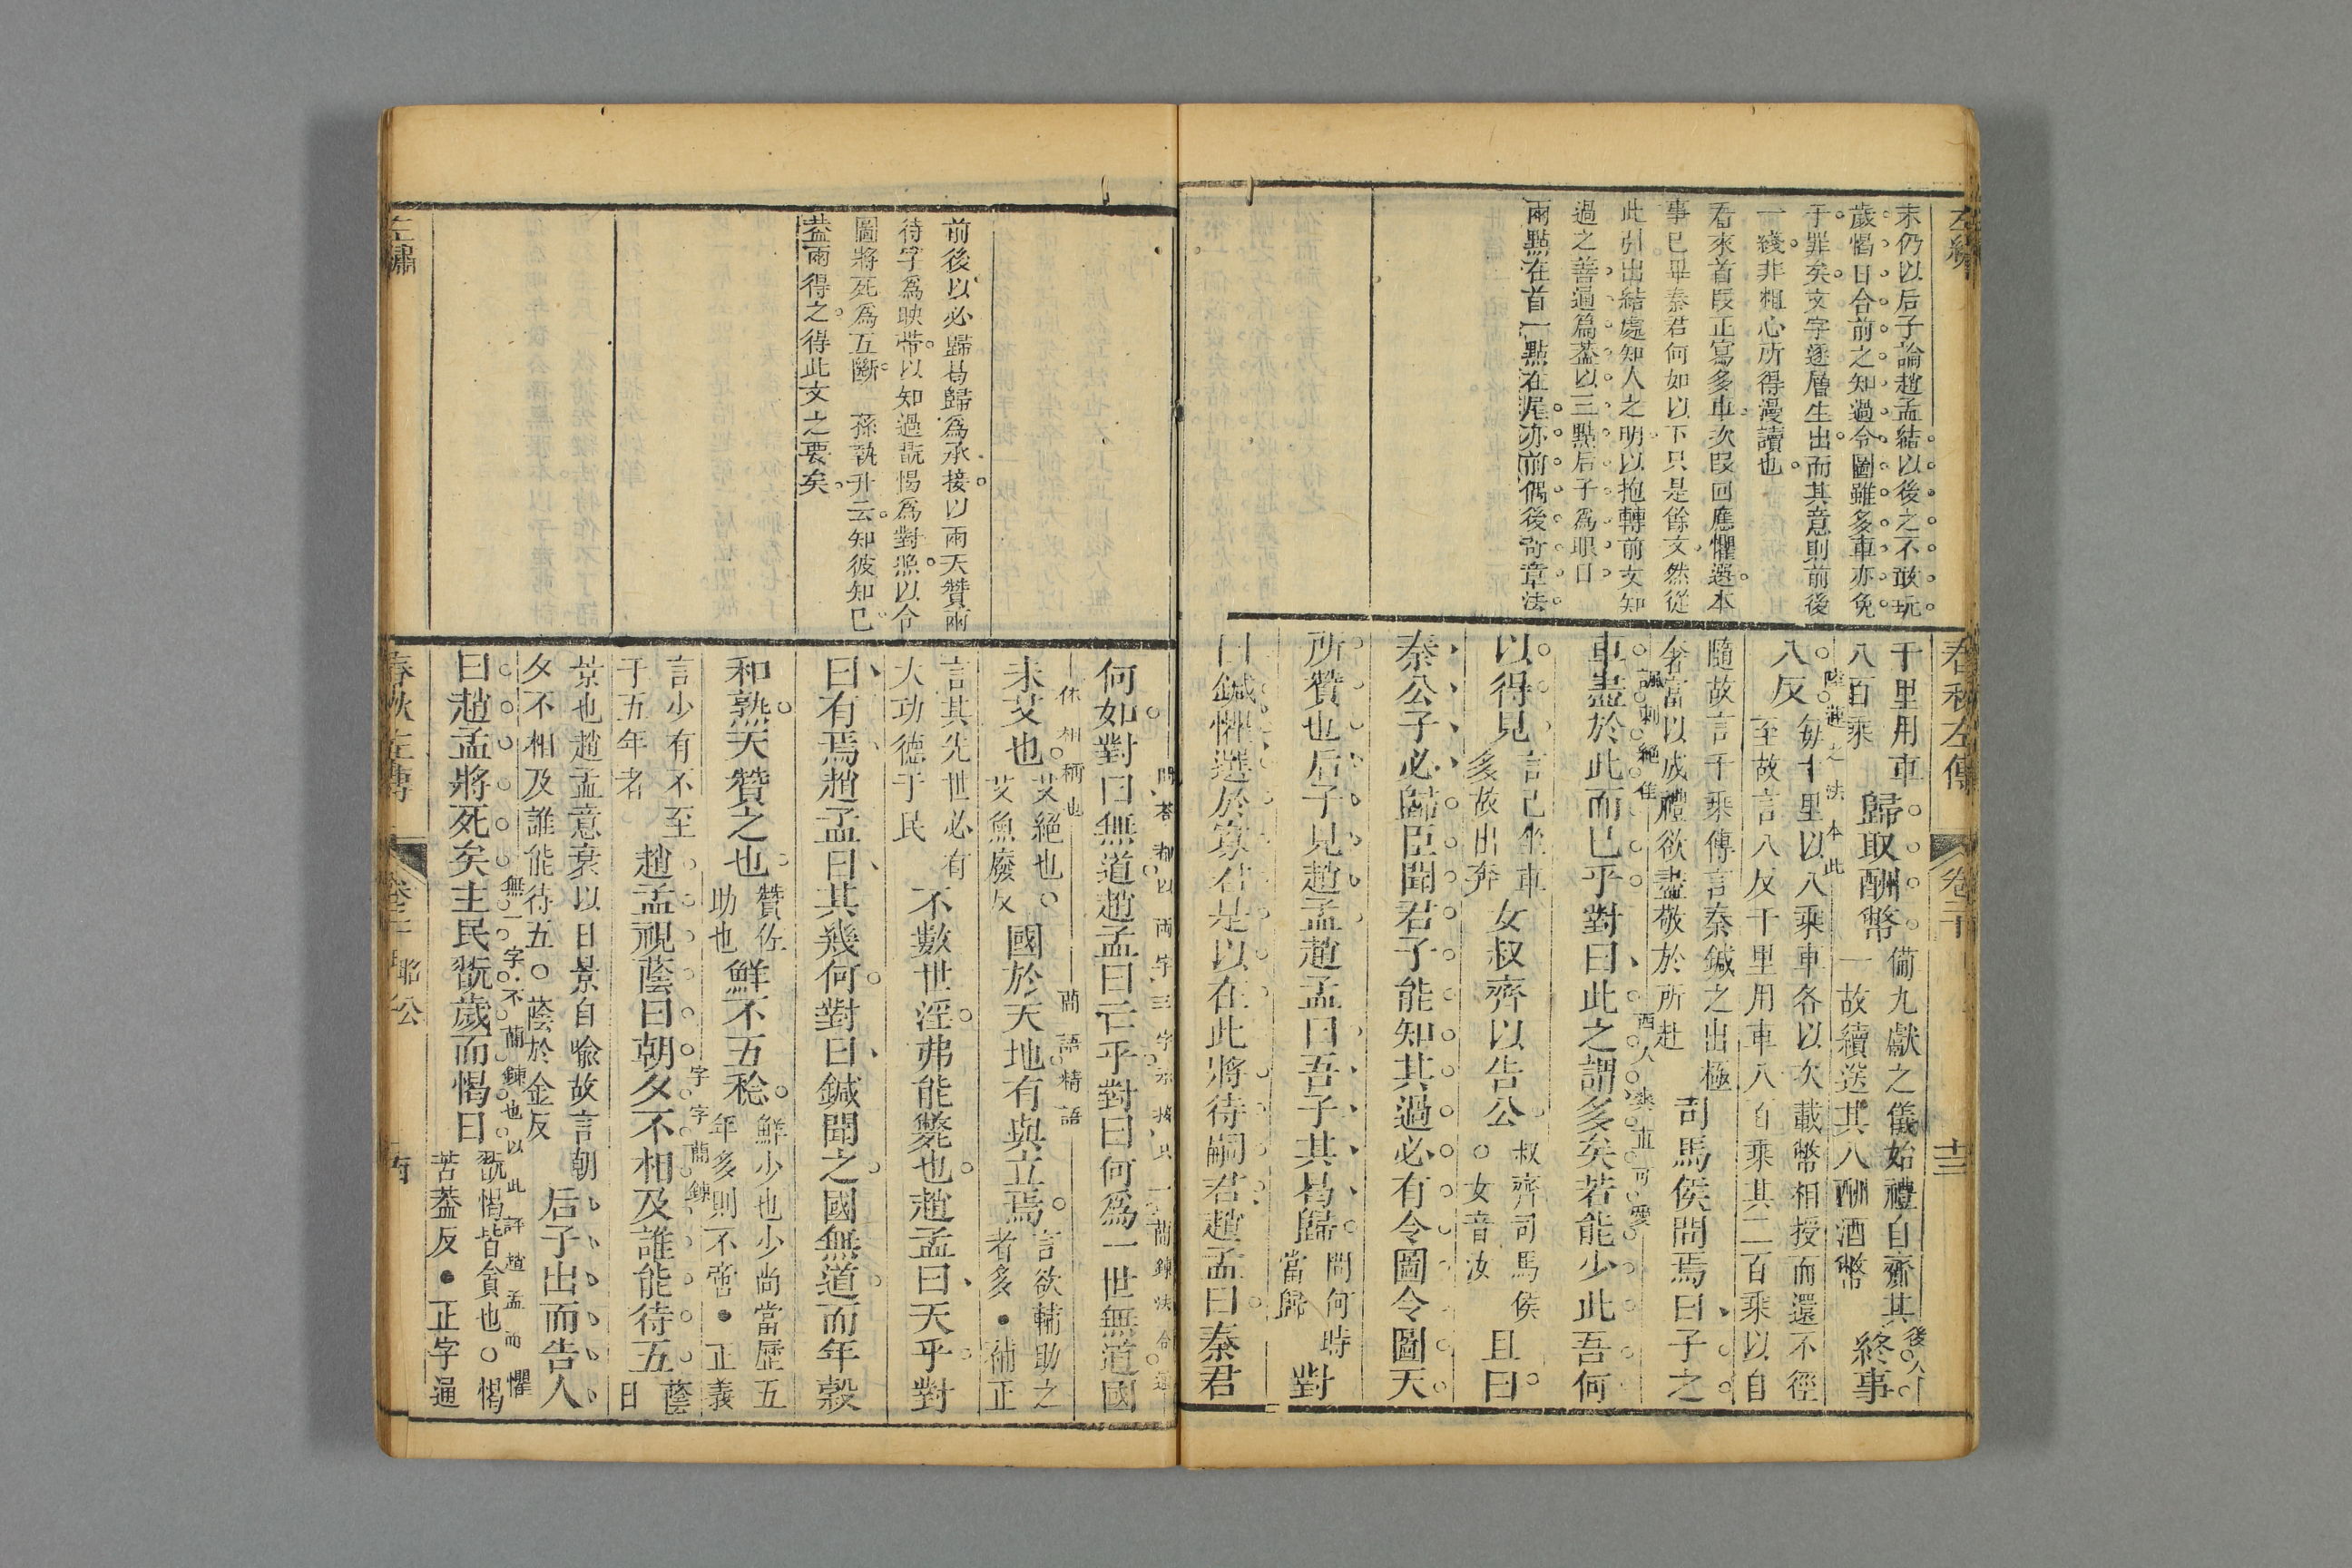 左繡
末仍以后子論趙孟結以後之不敢玩
歲愒日合前之知過令圖雖多車亦免
于罪矣文字逐層生出而其意則前後
一綫非粗心所得漫讀也
看來首段正寫多車次段回應懼選本
事已畢秦君何如以下只是餘文然從
此引出結處知人之明以抱轉前女知
過之善通篇葢以三點后子為眼目
兩點在首一點在尾亦前偶後奇章法
春秋左傳
卷二十
十三
千里用車
八百乘
歸取酬幣
備九獻之儀始禮自齎其
一故續送其八酬酒幣
終事
八反
每十里以八乘車各以次載幣相授而還不徑
至故言八反千里用車八百乘其二百乘以自
隨故言千乘傳言秦鍼之出極
奢富以成禮欲盡敬於所赴
司馬侯問焉曰子之
諷刺絕佳
車盡於此而已乎對曰此之謂多矣若能少此吾何
以得見
言己坐車
多故出奔
女叔齊以告公
叔齊司馬侯
○女音汝
且曰
秦公子必歸臣聞君子能知其過必有令圖令圖天
所贊也后子見趙孟趙孟曰吾子其曷歸
問何時
當歸
對
曰鍼懼選於寡君是以在此將待嗣君趙孟曰秦君
前後以必歸曷歸為承接以兩天贊兩
待字為映帶以知過翫愒為對照以令
圖將死為互斷 孫執升云知彼知己
葢兩得之得此文之要矣
何如對曰無道趙孟曰亡乎對曰何為一世無道國
未艾也
艾絕也○
艾魚廢反
國於天地有與立焉
言欲輔助之
者多●補正
蘭語精語
言其先世必有
大功德于民
不數世淫弗能斃也趙孟曰天乎對
曰有焉趙孟曰其幾何對曰鍼聞之國無道而年穀
和熟天贊之也
贊佐
助也
鮮不五稔
鮮少也少尚當歷五
年多則不啻●正義
言少有不至
于五年者
趙孟視蔭曰朝夕不相及誰能待五
蔭
日
景也趙孟意衰以日景自喻故言朝
夕不相及誰能待五○蔭於金反
后子出而告人
曰趙孟將死矣主民翫歲而愒日
翫愒皆貪也○愒
苦葢反●正字通
左繡
春秋左傳
卷二十 昭公
十四